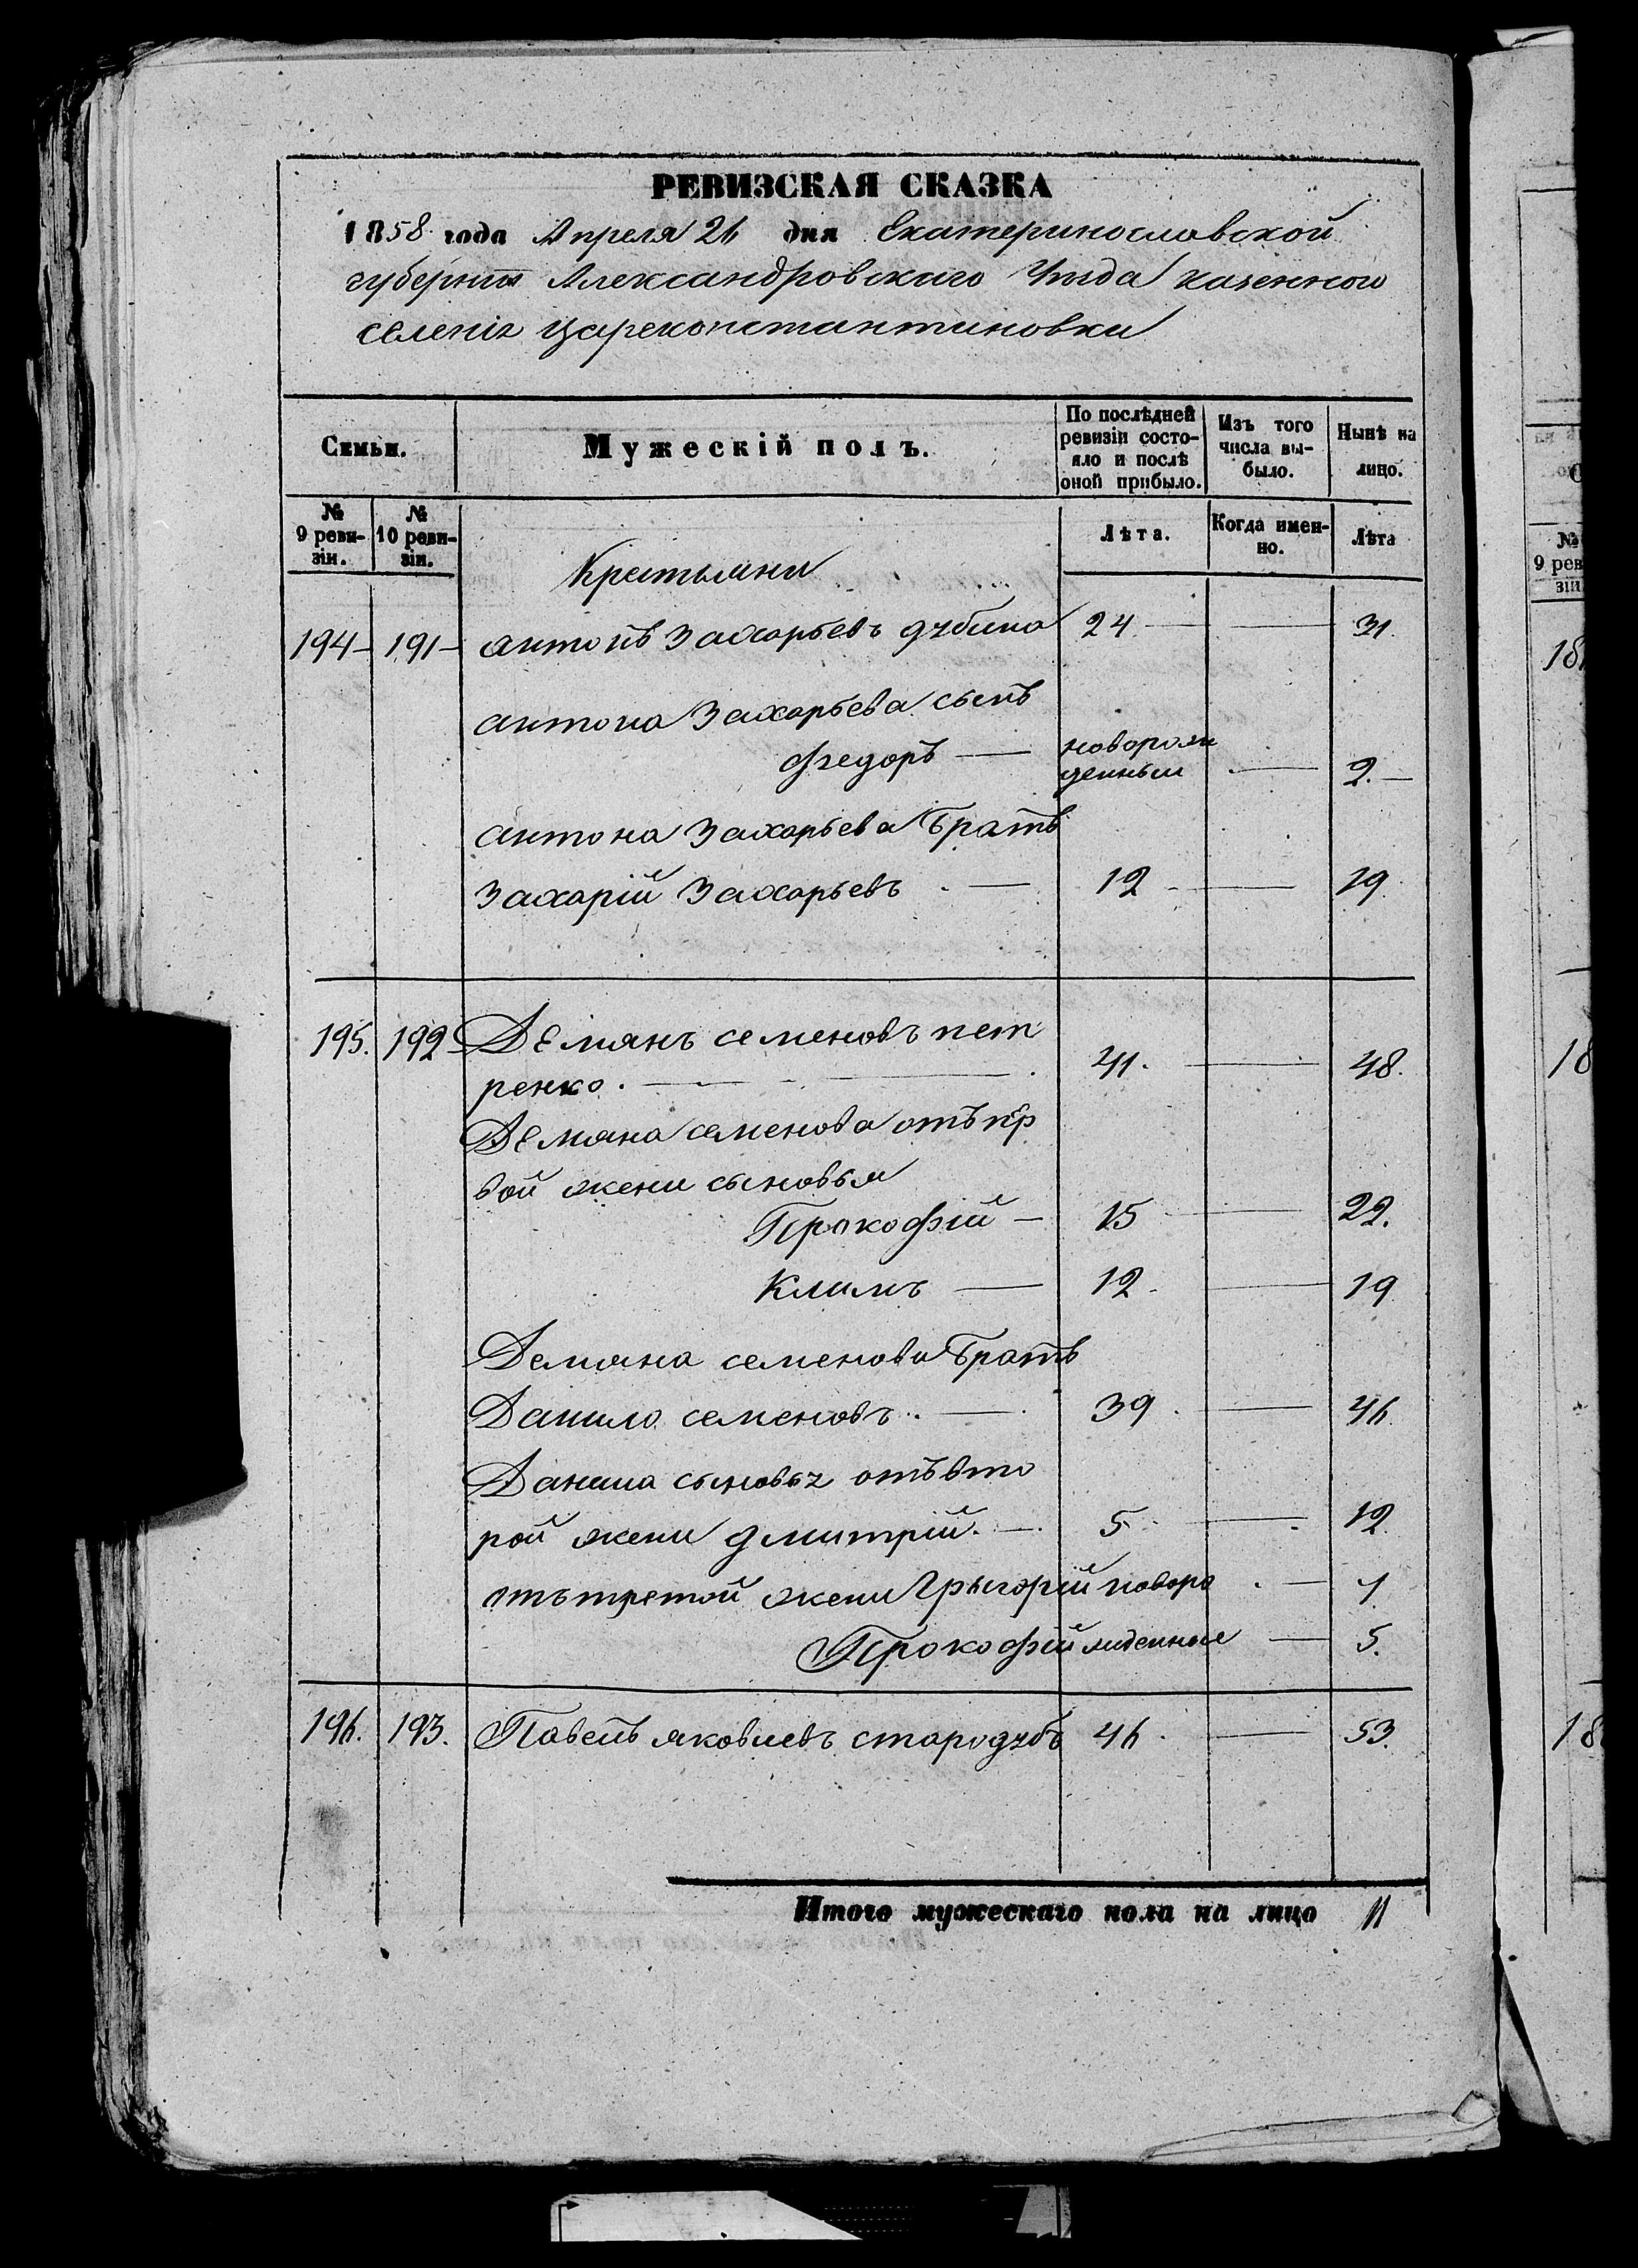 РЕВИЗСКАЯ СКАЗКА
1858 года Апреля 26 дня Екатеринославской
губернии Александровскаго Уезда казенного
селения Цареконстантиновки
Семьи.
Мужескій полъ.
По послѣдней ревизіи состо-
яло и послѣ
оной прибыло.
Изъ того
числа вы-
было.
Нынѣ на
лицо.
№
9 реви-
зіи.
№
10 реви-
зіи.
Лѣта.
Когда имен-
но.
Лѣта
Крестьяни
194 191 антонъ Захарьевъ дубина 24 31.
антона Захарьева сынъ
Федоръ новорож
денный 2.
антона Захарьева Братъ
Захарій Захарьевъ 12 19.
195. 192 Демянъ семеновъ пет
ренко. 41. 48.
Демяна семенова отъ пер
вой жени сыновья
Прокофій 15 22.
Климъ 12. 19
Демяна семенова Братъ
Данило семеновъ. 39. 46.
Данила сыновья отъ вто
рой жени дмитрій. 5. 12.
отъ третой жени Григорій новоро
Прокофій жденные 5.
196. 193. Павелъ яковлевъ стародубъ 46. 53.
Итого мужескаго пола на лицо 11
№
9 рев
зіи